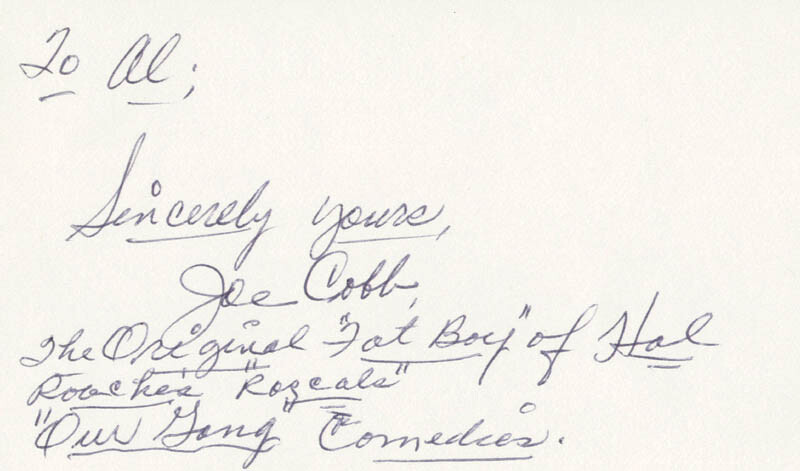 To Al;
Sincerely yours,
Joe Cobb,
The Original "Fat Boy" of Hal
Roache's "Rascals"
"Our Gang" Comedies.